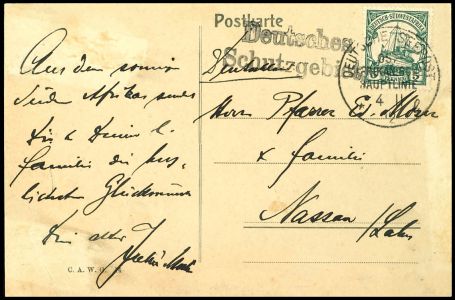 Postkarte
Deutsches
Schutzgebiet
DEUTSCHE SEEPOST
OSTAFRIKA
HAUPTLINIE
Aus dem sonnigen
Süden Afrikas sendet
Dir & Deiner l.
Familie die herz-
lichsten Glückwünsche
Dein alter
Herrn Pfarrer Ed.
& Familie
Nassau / Lahn
C. A. W. G.